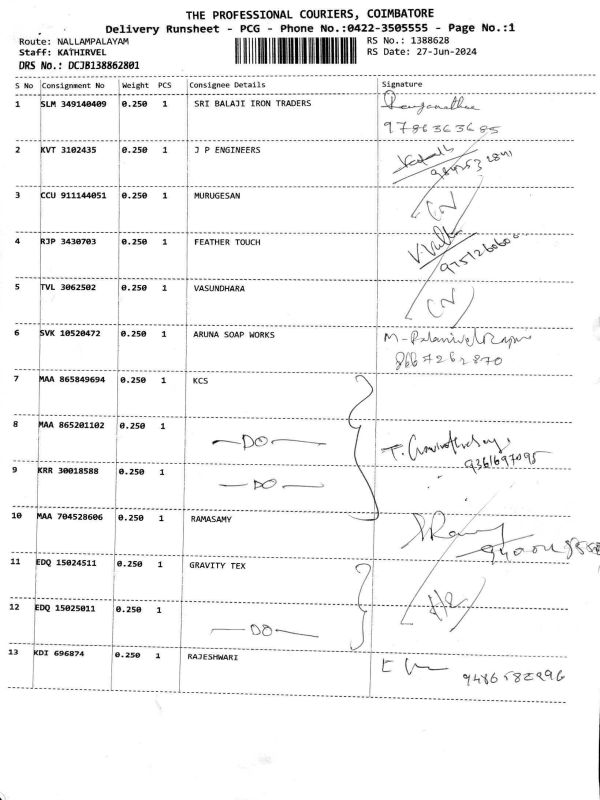 THE PROFESSIONAL COURIERS, COIMBATORE
Delivery Runsheet - PCG - Phone No.:0422-3505555 - Page No.:1
Route: NALLAMPALAYAM RS No.: 1388628
Staff: KATHIRVEL RS Date: 27-Jun-2024
DRS No.: DCJB138862801
S No Consignment No Weight PCS Consignee Details Signature
1 SLM 349140409 0.250 1 SRI BALAJI IRON TRADERS
9786363685
2 KVT 3102435 0.250 1 J P ENGINEERS
3 CCU 911144051 0.250 1 MURUGESAN
4 RJP 3430703 0.250 1 FEATHER TOUCH
5 TVL 3062502 0.250 1 VASUNDHARA
6 SVK 10520472 0.250 1 ARUNA SOAP WORKS
8667262870
7 MAA 865849694 0.250 1 KCS
8 MAA 865201102 0.250 1
—DO—
9361697095
9 KRR 30018588 0.250 1
—DO—
10 MAA 704528606 0.250 1 RAMASAMY
11 EDQ 15024511 0.250 1 GRAVITY TEX
12 EDQ 15025011 0.250 1
—DO—
13 KDI 696874 0.250 1 RAJESHWARI
9486582296